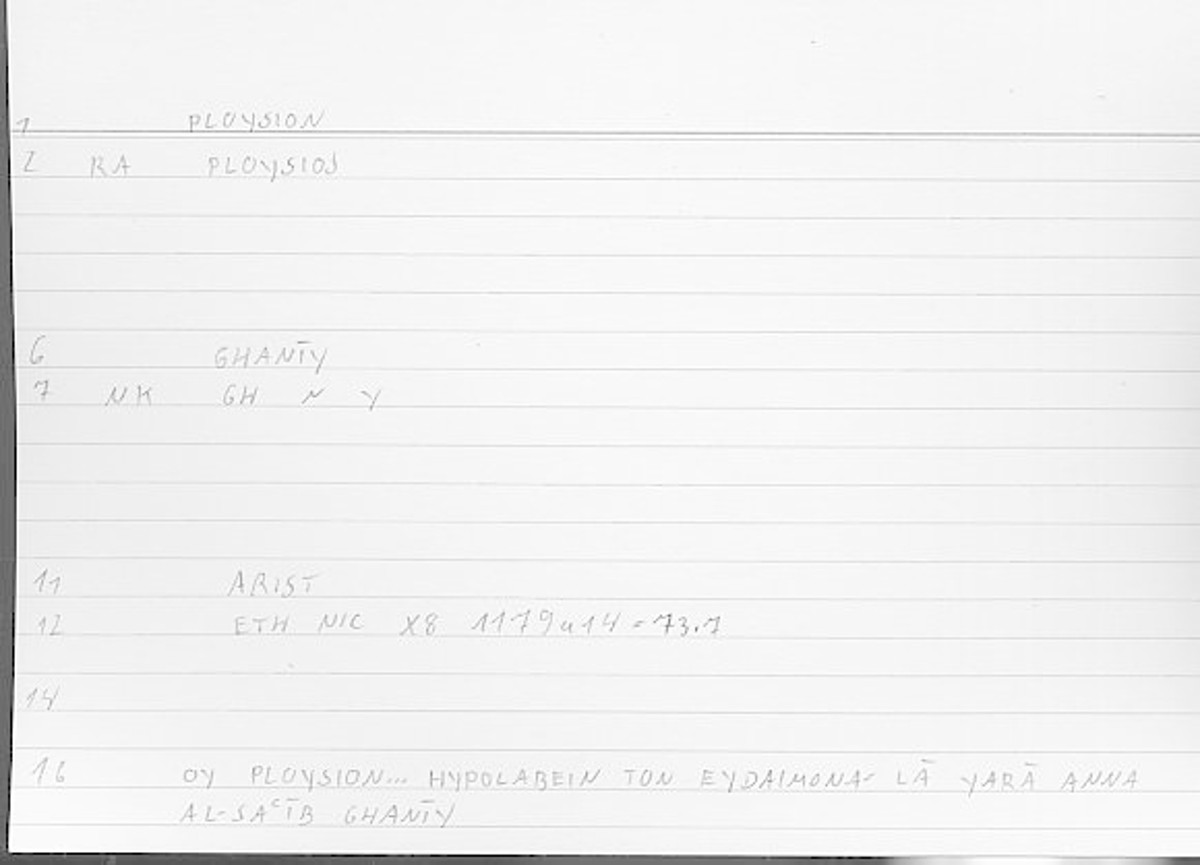 1 PLOYSION
2 RA PLOYSIOS
6 GHANĪY
7 NK GH N Y
11 ARIST
12 ETH NIC X8 1179a14 = 73.7
14
16 OY PLOYSION... HYPOLABEIN TON EYDAIMONA- LĀ YARĀ ANNA
AL-SAʿĪB GHANĪY